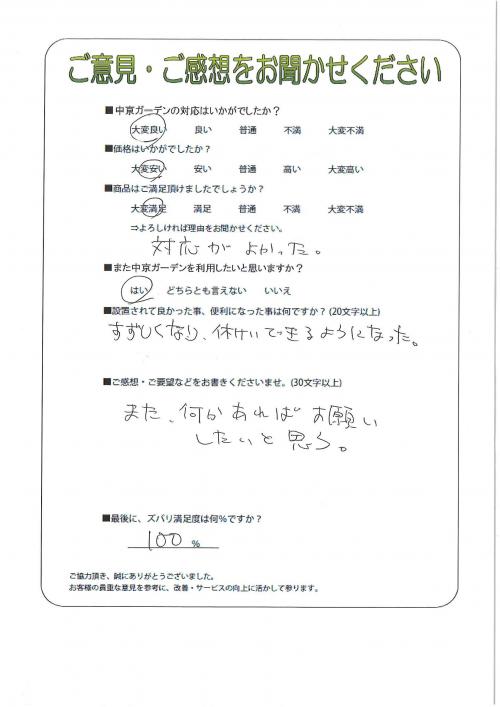 ご意見・ご感想をお聞かせください
■中京ガーデンの対応はいかがでしたか？
大変良い 良い 普通 不満 大変不満
■価格はいかがでしたか？
大変安い 安い 普通 高い 大変高い
■商品はご満足頂けましたでしょうか？
大変満足 満足 普通 不満 大変不満
⇒よろしければ理由をお聞かせください。
対応がよかった。
■また中京ガーデンを利用したいと思いますか？
はい どちらとも言えない いいえ
■設置されて良かった事、便利になった事は何ですか？(20文字以上)
すずしくなり、休けいできるようになった。
■ご感想・ご要望などをお書きくださいませ。(30文字以上)
また、何かあればお願い
したいと思う。
■最後に、ズバリ満足度は何%ですか？
100 %
ご協力頂き、誠にありがとうございました。
お客様の貴重な意見を参考に、改善・サービスの向上に活かして参ります。